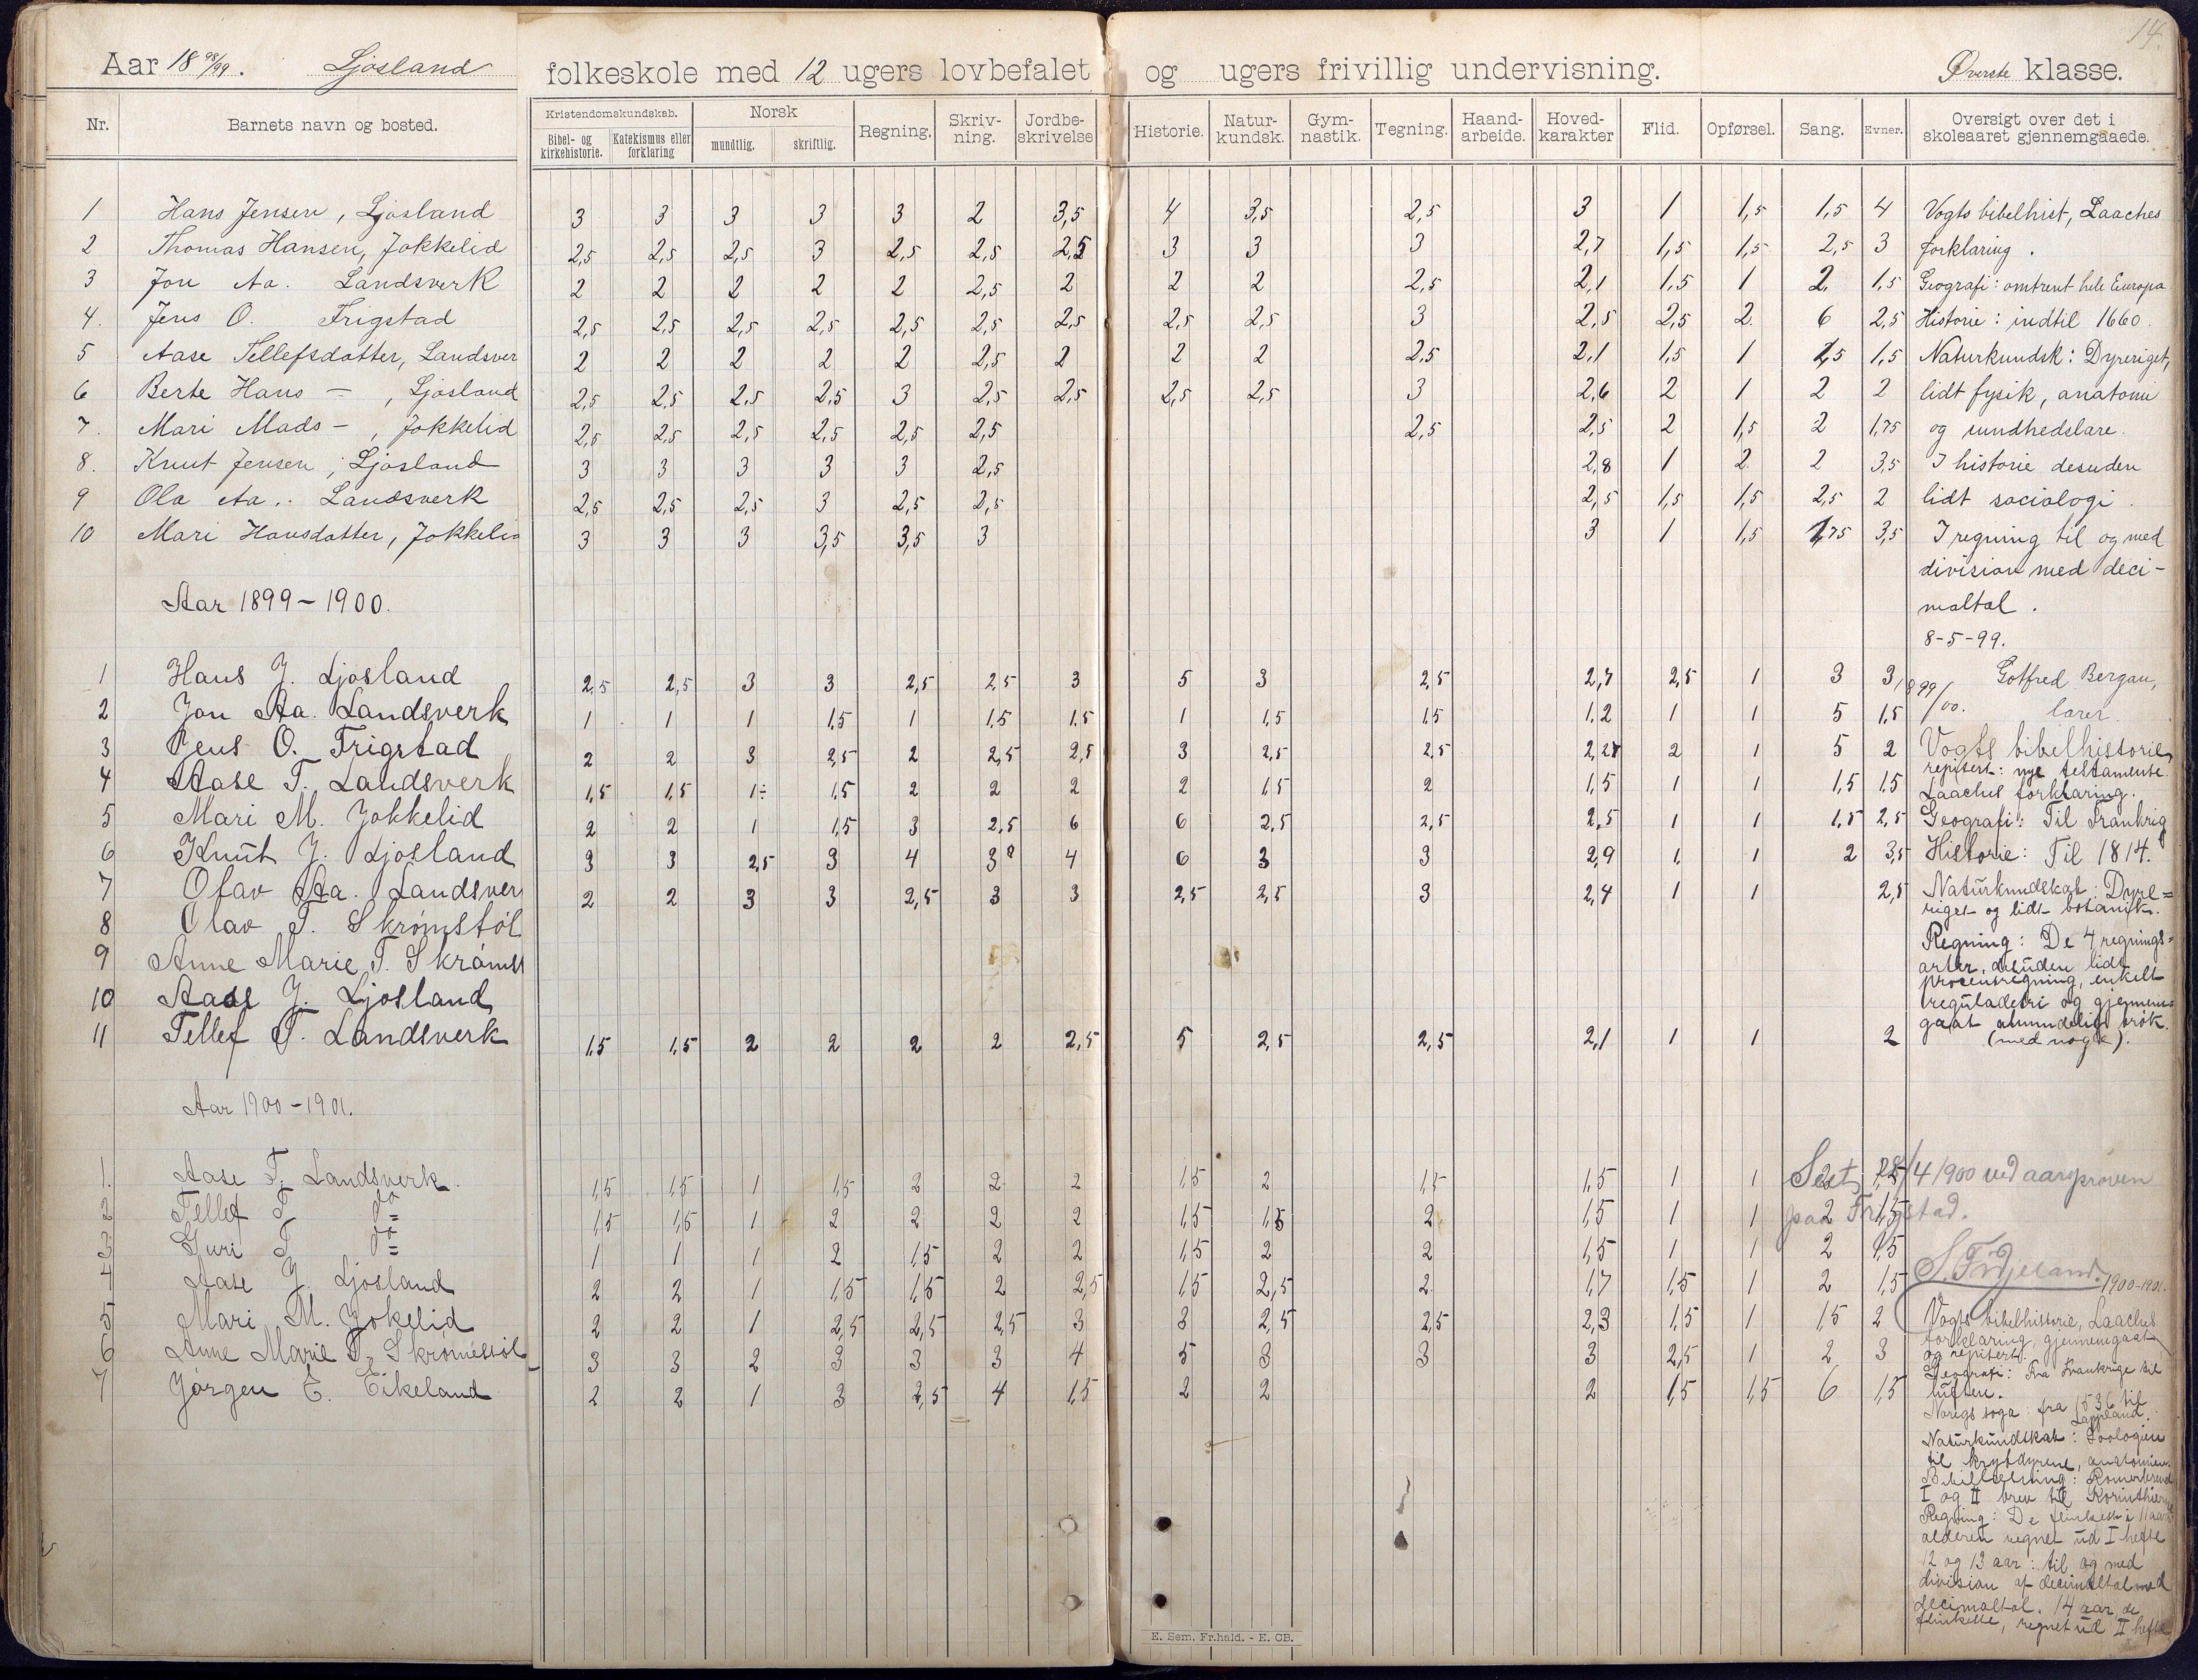 14.
Aar 18 98/99. Ljosland folkeskole med 12 ugers lovbefalet og ugers frivillig undervisning. Øverste klasse.
Nr. Barnets navn og bosted. Kristendomskundskab. Bibel- og kirkehistorie. Katekismus eller forklaring Norsk mundtlig. skriftlig. Regning. Skriv-ning. Jordbe-skrivelse Historie. Natur-kundsk. Gym-nastik. Tegning. Haand-arbeide. Hoved-karakter Flid. Opførsel. Sang. Evner. Oversigt over det i skoleaaret gjennemgaaede.
1 Hans Jensen, Ljosland 3 3 3 3 3 2 3,5 4 3,5 2,5 3 1 1,5 1,5 4 Vogts bibelhist, Laaches
2 Thomas Hansen, Jokkelid 2,5 2,5 2,5 3 2,5 2,5 2,5 3 3 3 2,7 1,5 1,5 2,5 3 forklaring.
3 Jon Aa. Landsverk 2 2 2 2 2 2,5 2 2 2 2,5 2,1 1,5 1 2 1,5 Geografi: omtrent hele Europa
4. Jens O. Frigstad 2,5 2,5 2,5 2,5 2,5 2,5 2,5 2,5 2,5 3 2,5 2,5 2 6 2,5 Historie: indtil 1660.
5 Aase Tellefsdatter, Landsver 2 2 2 2 2 2,5 2 2 2 2,5 2,1 1,5 1 1,5 1,5 Naturkundsk: Dyreriget,
6 Berte Hans -, Ljosland 2,5 2,5 2,5 2,5 3 2,5 2,5 2,5 2,5 3 2,6 2 1 2 2 lidt fysik, anatomi
7. Mari Mads -, Jokkelid 2,5 2,5 2,5 2,5 2,5 2,5 2,5 2,5 2 1,5 2 1,75 og sundhedslære.
8. Knut Jensen, Ljosland 3 3 3 3 3 2,5 2,8 1 2 2 3,5 I historie desuden
9 Ola Aa. Landsverk 2,5 2,5 2,5 3 2,5 2,5 2,5 1,5 1,5 2,5 2 lidt sociologi.
10 Mari Hansdatter, Jokkelid 3 3 3 3,5 3,5 3 3 1 1,5 1,75 3,5 I regning til og med
division med deci-
Aar 1899-1900. maltal.
8-5-99.
1 Hans J. Ljosland 2,5 2,5 3 3 2,5 2,5 3 5 3 2,5 2,7 2,5 1 3 3 Gotfred Bergan,
2 Jon Aa. Landsverk 1 1 1 1,5 1 1,5 1,5 1 1,5 1,5 1,2 1 1 5 1,5 1899/00. lærer.
3 Jens O. Frigstad 2 2 3 2,5 2 2,5 2,5 3 2,5 2,5 2,27 2 1 5 2 Vogts bibelhistorie,
repitert: nye testamente.
4 Aase T. Landsverk 1,5 1,5 1÷ 1,5 2 2 2 2 1,5 2 1,5 1 1 1,5 1,5 Laaches forklaring.
5 Mari M. Jokkelid 2 2 1 1,5 3 2,5 6 6 2,5 2,5 2,5 1 1 1,5 2,5 Geografi: Til Frankrig
6 Knut J. Ljosland 3 3 2,5 3 4 3 4 6 3 3 2,9 1 1 2 3,5 Historie: Til 1814.
7 Olav Aa. Landsver 2 2 3 3 2,5 3 3 2,5 2,5 3 2,4 1 1 2,5 Naturkundskab: Dyre=
riget og lidt botanik.
8 Olav T. Skromstøl
9 Anne Marie T. Skrømst Regning: De 4 regnings=
arter, desuden lidt
procentregning, enkelt
10 Aase J. Ljosland reguladetri og gjennem=
11 Tellef T. Landsverk 1,5 1,5 2 2 2 2 2,5 5 2,5 2,5 2,1 1 1 2 gaat almindelig brøk.
(med nogle).
Aar 1900-1901.
1. Aase T. Landsverk. 1,5 1,5 1 1,5 2 2 2 1,5 2 1,5 1,5 1 1 2 1,5
Seet 28/4 1900 ved aarsprøven
2 Tellef T do 1,5 1,5 1 2 2 2 2 1,5 1,5 2 1,5 1 1 2 1,5
paa Frigstad.
3 Guri T do 1 1 1 2 1,5 2 2 1,5 2 2 1,5 1 1 2 1,5
4 Aase J. Ljosland 2 2 1 1,5 1,5 2 2,5 1,5 2,5 2 1,7 1,5 1 2 1,5 1900-1901.
5 Mari M. Jokelid 2 2 1 2,5 2,5 2,5 3 3 2,5 2,5 2,3 1,5 1 1,5 2 Vogts bibelhistorie, Laaches
forklaring, gjennemgaat
6 Anne Marie T. Skrømestøl 3 3 2 3 3 3 4 5 3 3 3 2,5 1 2 3 og repitert.
Geografi: Fra Frankrige til
7 Jørgen E. Eikeland 2 2 1 3 2,5 4 1,5 2 2 2 1,5 1,5 6 1,5 luften.
Noregs soga: fra 1536 til
Naturkundskab: Zoologien
til krybdyrene, anatomien.
Bibellæsning: Romerbrevet
I og II brev til Korinthierne
Regning: De flinkeste i 11 aars
alderen regnet ud I hefte
12 og 13 aar: til og med
division af decimaltal med
decimaltal. 14 aar, de
flinkeste, regnet ud II hefte
E. Sem, Fr.hald. - E. CB.